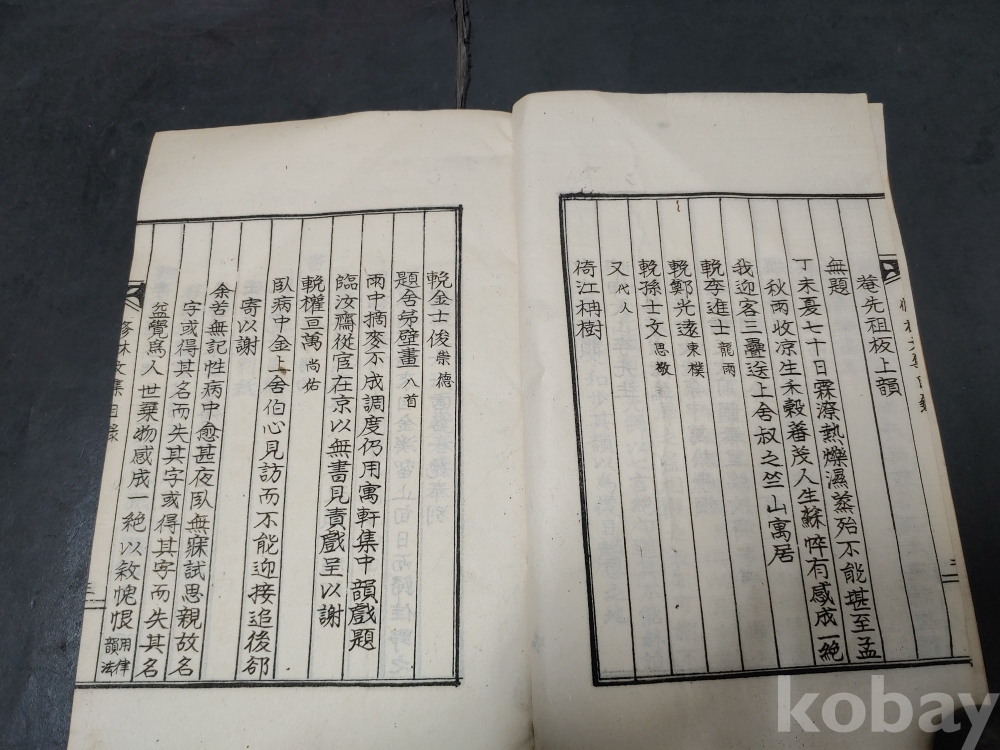 菴先祖板上韻
無題
丁未夏七十日霖潦熱爍濕蒸殆不能堪至孟
秋雨收凉生禾穀蕃茂人生蘇悴有感成一絶
我迎客三疊送上舍叔之竺山寓居
輓李進士 龍雨
輓鄭光遠 東樸
輓孫士文 思敬
又 代人
倚江柟樹
二
輓金士俊 崇德
題舍弟壁畫 八首
雨中摘麥不成調度仍用寓軒集中韻戲題
臨汝齋從宦在京以無書見責戲呈以謝
輓權亘萬 尚佑
臥病中金上舍伯心見訪而不能迎接追後郤
寄以謝
余苦無記性病中愈甚夜臥無寐試思親故名
字或得其名而失其字或得其字而失其名
益覺爲人世棄物感成一絶以敘愧恨 用律韻法
修林文集目錄
三
kobay